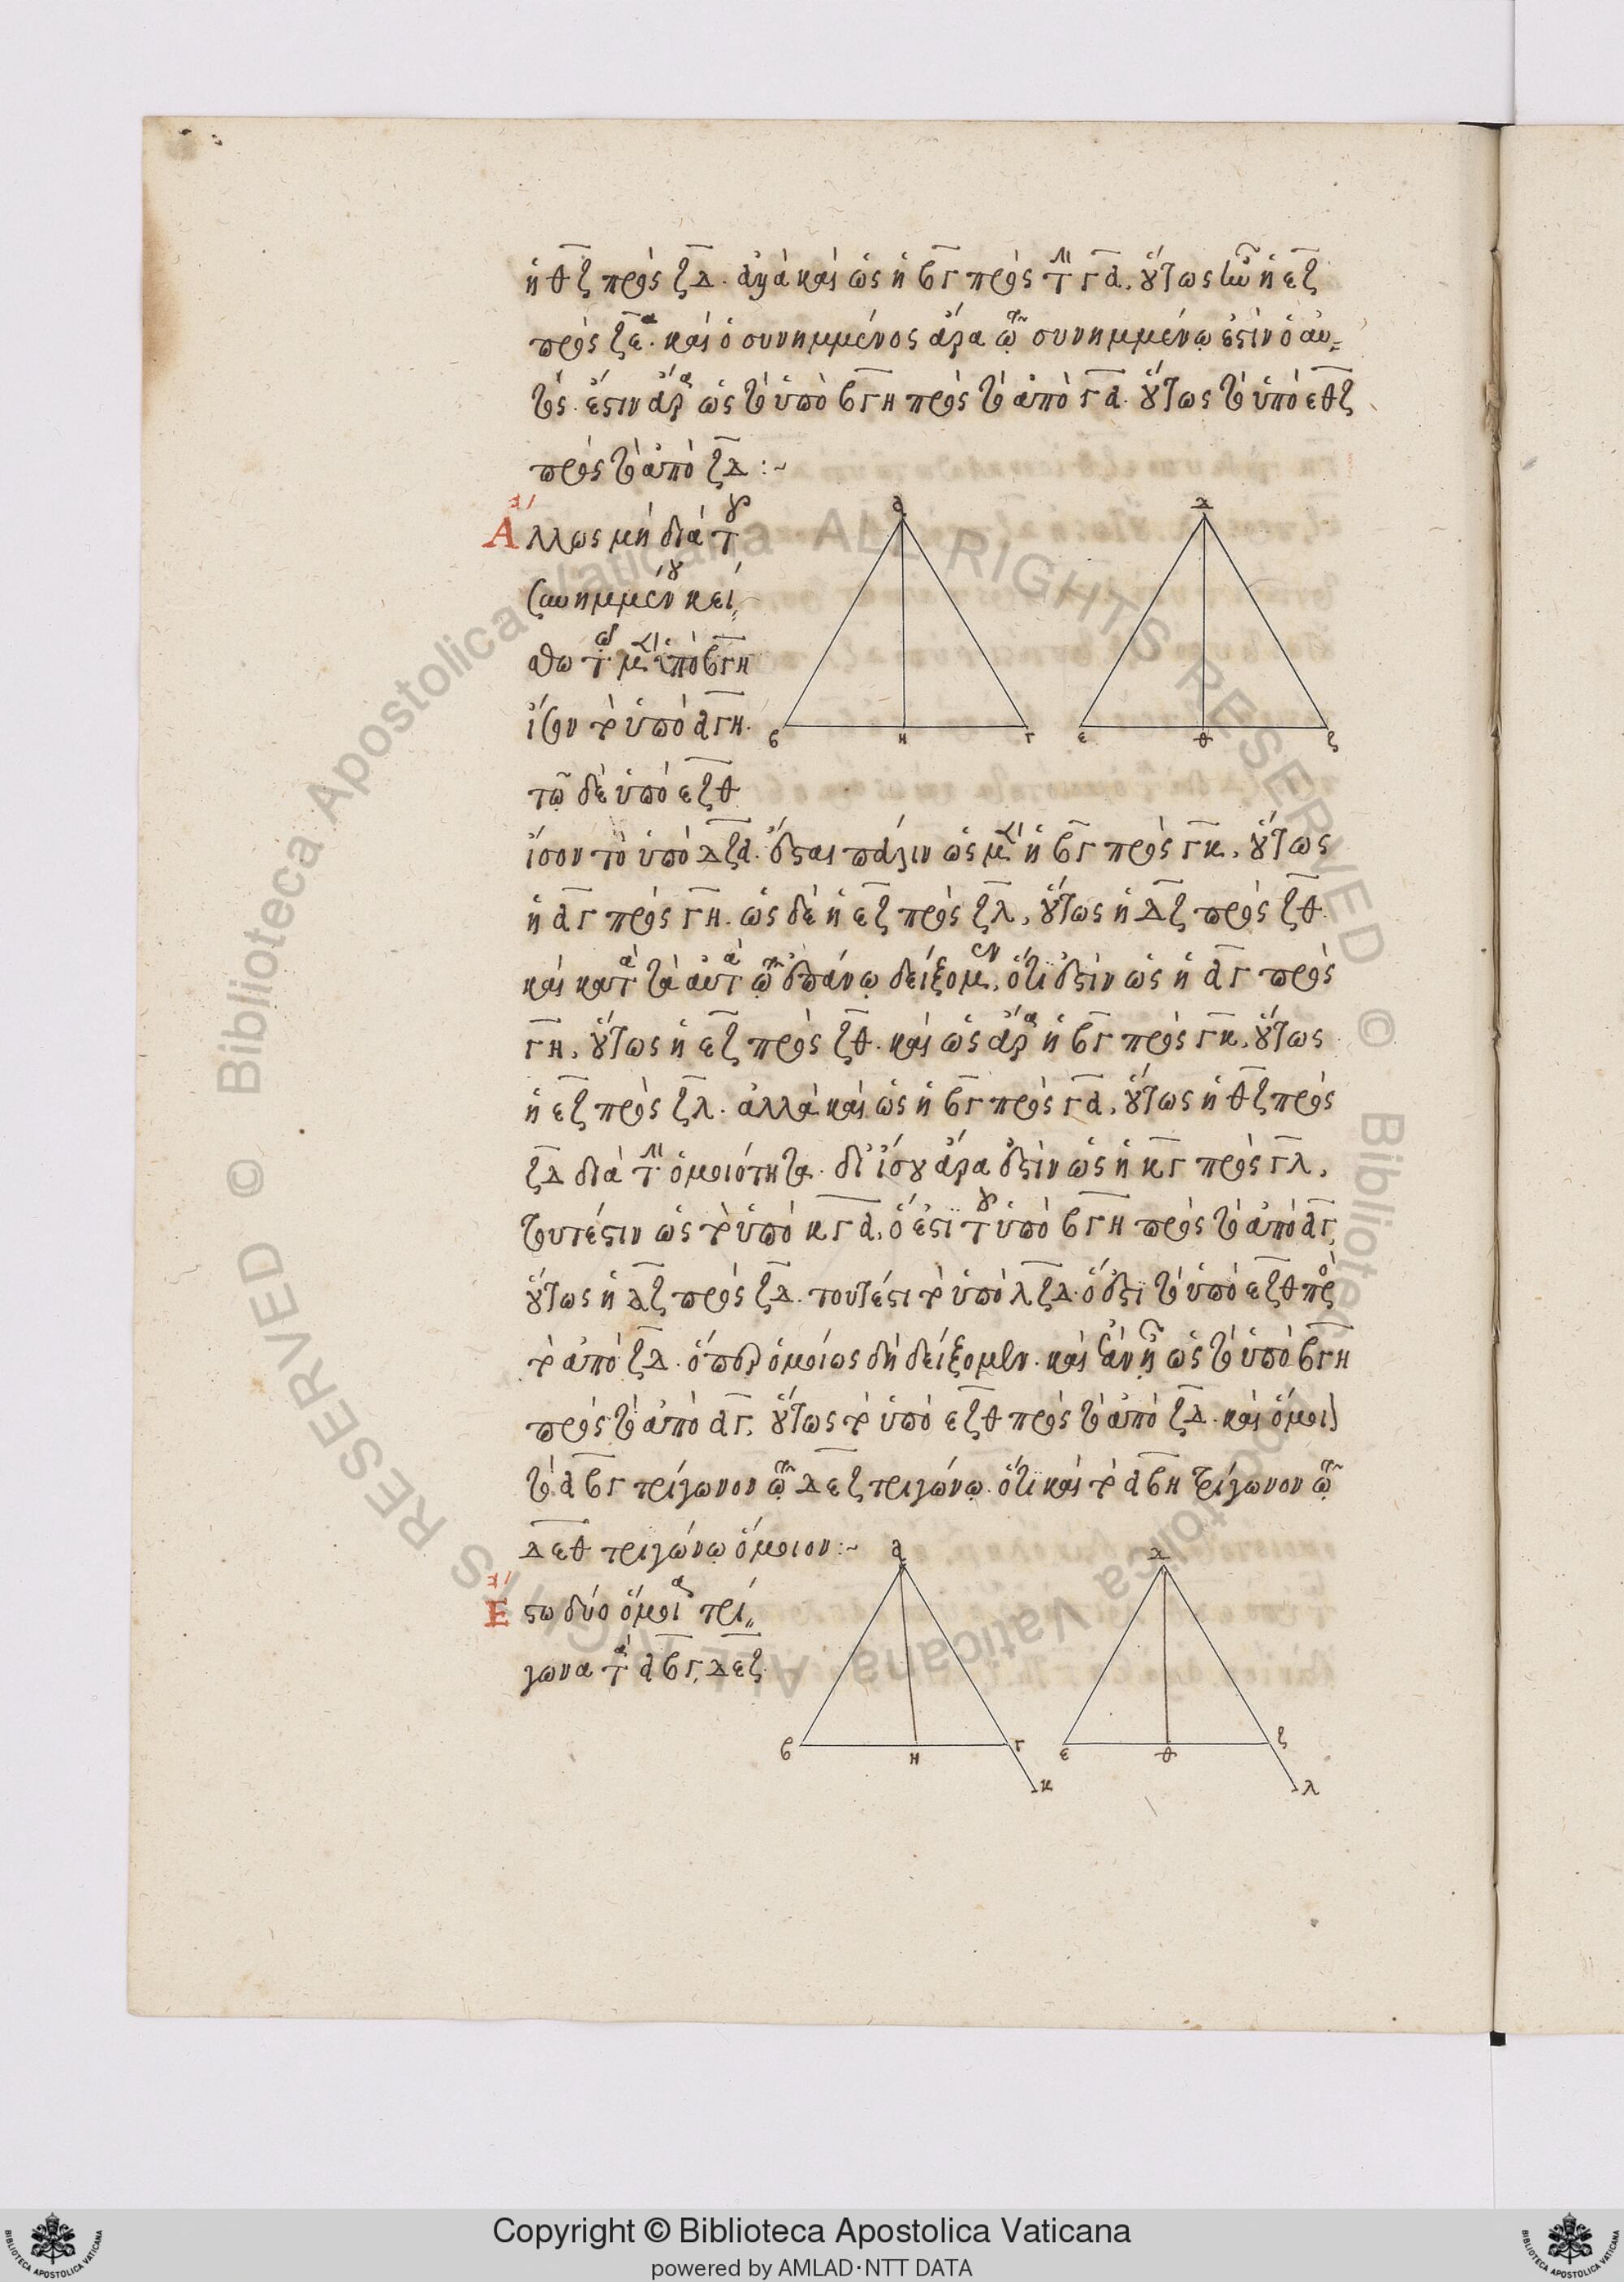 ἡ θζ πρὸς ζδ. ἀλλὰ καὶ ὡς ἡ βγ πρὸς τὴν γα, οὕτως ἦν ἡ εζ
πρὸς ζε. καὶ ὁ συνημμένος ἄρα τῷ συνημμένῳ ἐστὶν ὁ αὐ-
τός. ἔστιν ἄρα ὡς τὸ ὑπὸ βγη πρὸς τὸ ἀπὸ γα. οὕτως τὸ ὑπὸ εθζ
πρὸς τὸ ἀπὸ ζδ :~
Ἄλλως μὴ διὰ τοῦ
συνημμένου κεί-
σθω τῷ μὲν ὑπὸ βγη
ἴσον τὸ ὑπὸ αγη.
τῷ δὲ ὑπὸ εζθ
ἴσον τὸ ὑπὸ δζα. ἔσται πάλιν ὡς μὲν ἡ βγ πρὸς γκ, οὕτως
ἡ αγ πρὸς γη. ὡς δὲ ἡ εζ πρὸς ζλ, οὕτως ἡ δζ πρὸς ζθ.
καὶ κατὰ τὰ αὐτὰ τῷ ἐπάνω δείξομεν, ὅτι ἐστὶν ὡς ἡ αγ πρὸς
γη, οὕτως ἡ εζ πρὸς ζθ. καὶ ὡς ἄρα ἡ βγ πρὸς γκ, οὕτως
ἡ εζ πρὸς ζλ. ἀλλὰ καὶ ὡς ἡ βγ πρὸς γα, οὕτως ἡ θζ πρὸς
ζδ διὰ τὴν ὁμοιότητα. δι' ἴσου ἄρα ἐστὶν ὡς ἡ κγ πρὸς γλ,
τουτέστιν ὡς τὸ ὑπὸ κγα, ὅ ἐστι τοῦ ὑπὸ βγη πρὸς τὸ ἀπὸ αγ,
οὕτως ἡ λζ πρὸς ζδ. τουτέστι τὸ ὑπὸ λζδ. ὅ ἐστι τὸ ὑπὸ εζθ πρὸς
τὸ ἀπὸ ζδ. ὅπερ ὁμοίως δὴ δείξομεν. καὶ ἐὰν ᾖ ὡς τὸ ὑπὸ βγη
πρὸς τὸ ἀπὸ αγ, οὕτως τὸ ὑπὸ εζθ πρὸς τὸ ἀπὸ ζδ. καὶ ὅμοι
τὸ αβγ τρίγωνον τῷ δεζ τριγώνῳ. ὅτι καὶ τὸ αβη τρίγωνον τῷ
δεθ τριγώνῳ ὅμοιον :~
Ἔστω δύο ὅμοια τρί-
γωνα τὰ αβγ, δεζ
α
δ
β
η
γ
ε
θ
ζ
α
δ
β
η
γ
κ
ε
θ
ζ
λ
© Biblioteca Apostolica Vaticana ALL RIGHTS RESERVED
Copyright © Biblioteca Apostolica Vaticana
powered by AMLAD·NTT DATA
BIBLIOTECA APOSTOLICA VATICANA
BIBLIOTECA APOSTOLICA VATICANA